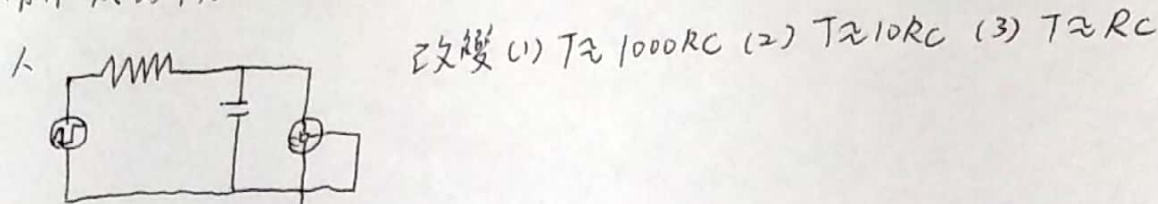 改變 (1) T≈1000RC (2) T≈10RC (3) T≈RC
1、